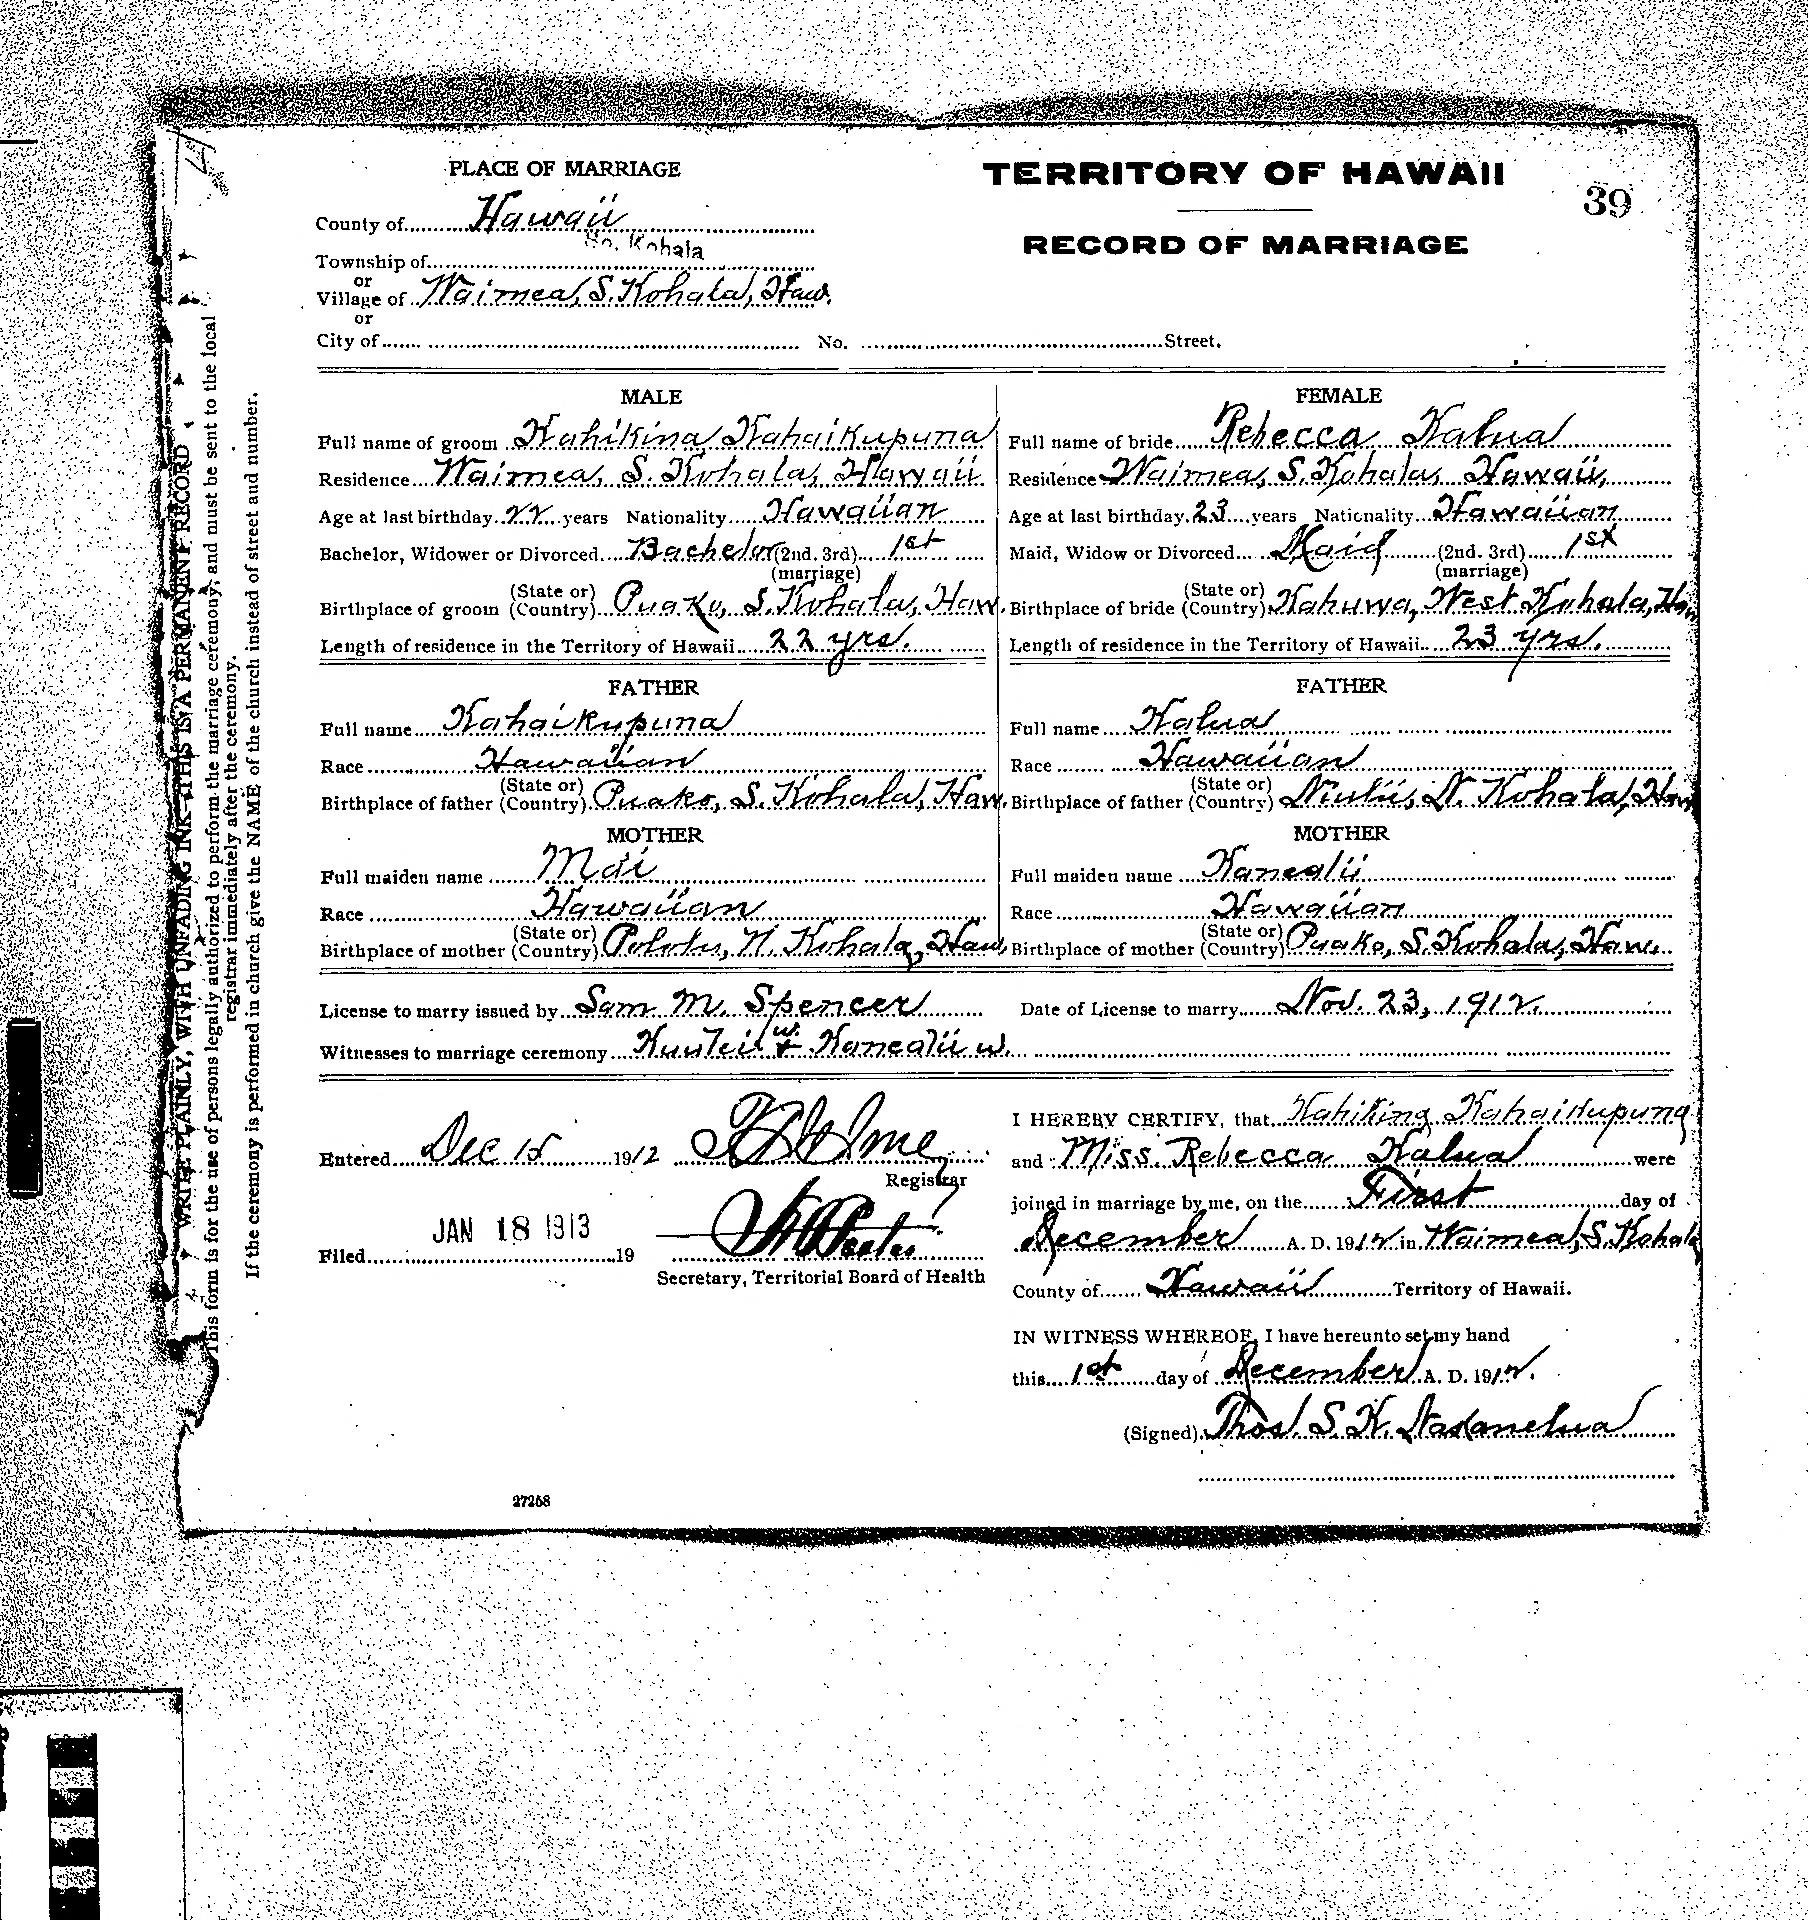 PLACE OF MARRIAGE
TERRITORY OF HAWAII
39
RECORD OF MARRIAGE
County of Hawaii
So. Kohala
Township of
or
Village of Waimea, S. Kohala, Haw.
or
City of No. Street.
MALE
Full name of groom Kahikina Kahaikupuna
Residence Waimea, S. Kohala, Hawaii
Age at last birthday 22 years Nationality Hawaiian
Bachelor, Widower or Divorced Bachelor (2nd. 3rd) 1st
(marriage)
Birthplace of groom (State or) (Country) Puako, S. Kohala, Haw.
Length of residence in the Territory of Hawaii 22 yrs.
FATHER
Full name Kahaikupuna
Race Hawaiian
Birthplace of father (State or) (Country) Puako, S. Kohala, Haw.
MOTHER
Full maiden name Maii
Race Hawaiian
Birthplace of mother (State or) (Country) Pololu, N. Kohala, Haw.
FEMALE
Full name of bride Rebecca Kalua
Residence Waimea, S. Kohala, Hawaii,
Age at last birthday 23 years Nationality Hawaiian
Maid, Widow or Divorced Maid (2nd. 3rd) 1st
(marriage)
Birthplace of bride (State or) (Country) Kahuwa, West Kohala, Haw
Length of residence in the Territory of Hawaii 23 yrs.
FATHER
Full name Kalua
Race Hawaiian
Birthplace of father (State or) (Country) Niulii, N. Kohala, Haw
MOTHER
Full maiden name Kanealii
Race Hawaiian
Birthplace of mother (State or) (Country) Puako, S. Kohala, Haw.
License to marry issued by Sam M. Spencer Date of License to marry Nov. 23, 1912.
Witnesses to marriage ceremony w. & Kanealii w.
Entered Dec 15 1912
Registrar
JAN 18 1913
Filed 19
Secretary, Territorial Board of Health
I HEREBY CERTIFY, that Kahikina Kahaikupuna
and Miss. Rebecca Kalua were
joined in marriage by me, on the First day of
December A. D. 1912 in Waimea, S. Kohala
County of Hawaii Territory of Hawaii.
IN WITNESS WHEREOF, I have hereunto set my hand
this 1st day of December A. D. 1912.
(Signed) Thos. S. K. Nakanelua
27258
WRITE PLAINLY, WITH UNFADING INK—THIS IS A PERMANENT RECORD
This form is for the use of persons legally authorized to perform the marriage ceremony, and must be sent to the local
registrar immediately after the ceremony.
If the ceremony is performed in church give the NAME of the church instead of street and number.